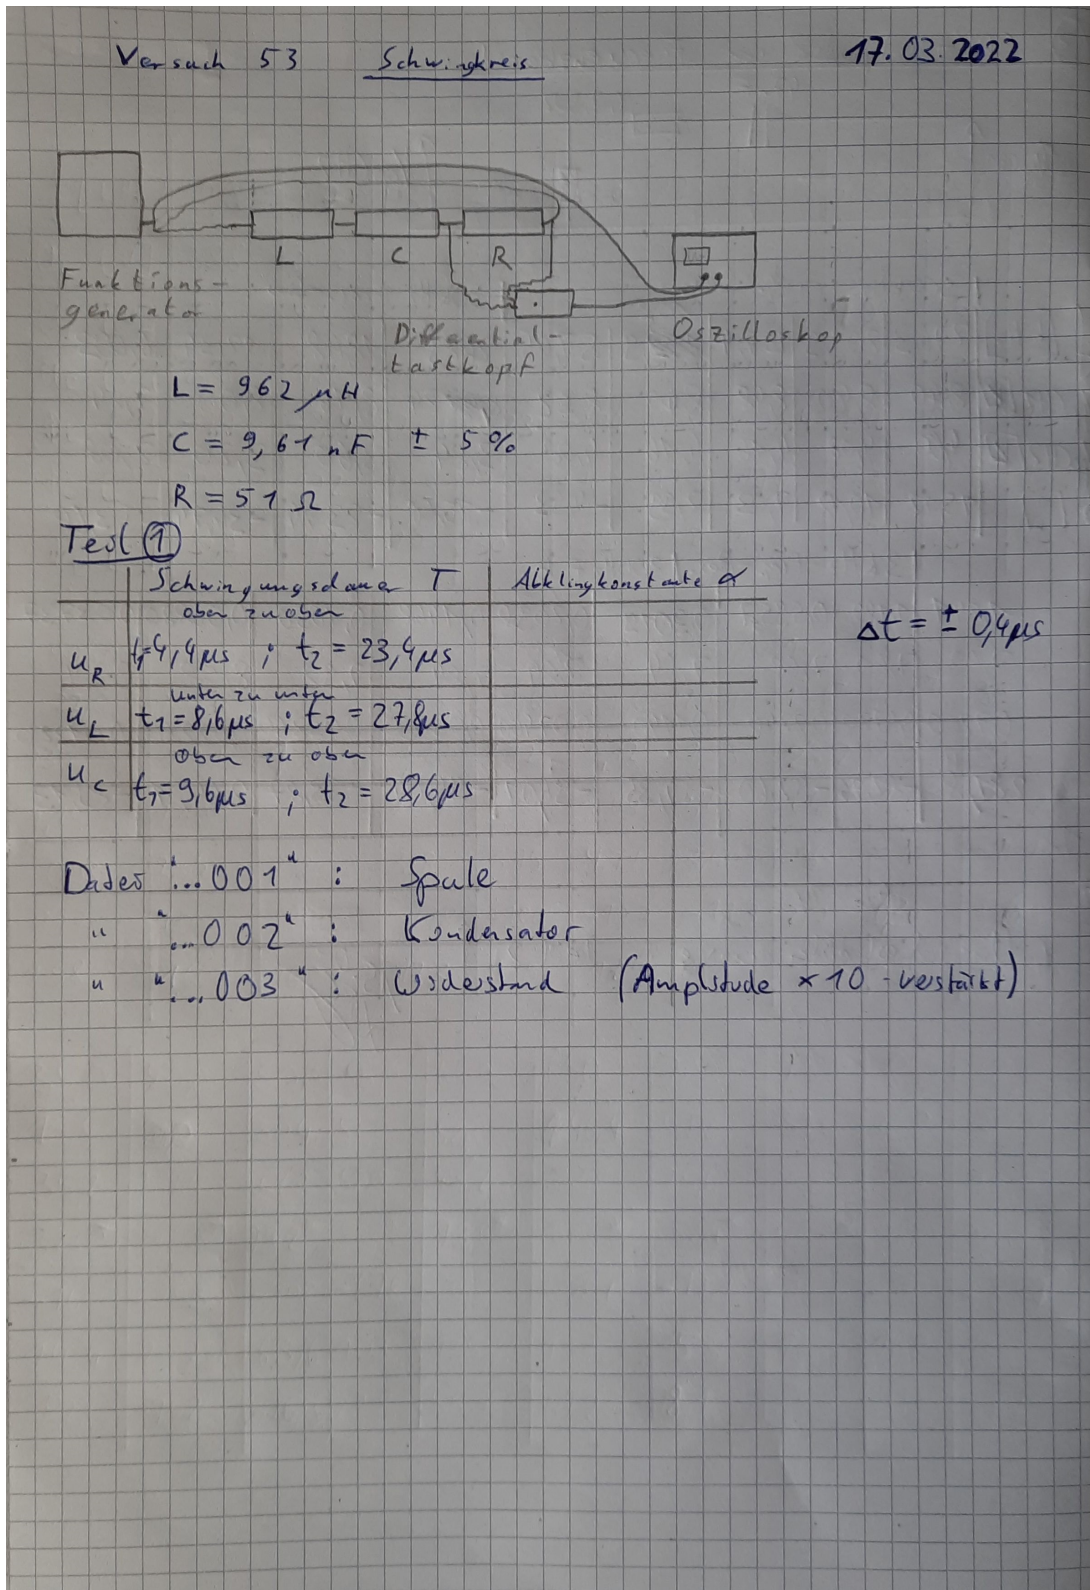 Versuch 53 Schwingkreis 17.03.2022
L C R
Funktions-
generator
Differential-
tastkopf
Oszilloskop
L = 962 µH
C = 9,61 nF ± 5 %
R = 51 Ω
Teil ①
Schwingungsdauer T Abklingkonstante α
oben zu oben
Δt = ± 0,4µs
u_R t₁=4,4µs ; t₂ = 23,4µs
unten zu unten
u_L t₁ = 8,6µs ; t₂ = 27,8µs
oben zu oben
u_C t₁=9,6µs ; t₂ = 28,6µs
Datei "...001" : Spule
" "...002" : Kondensator
" "...003" : Widerstand (Amplitude × 10 -verstärkt)